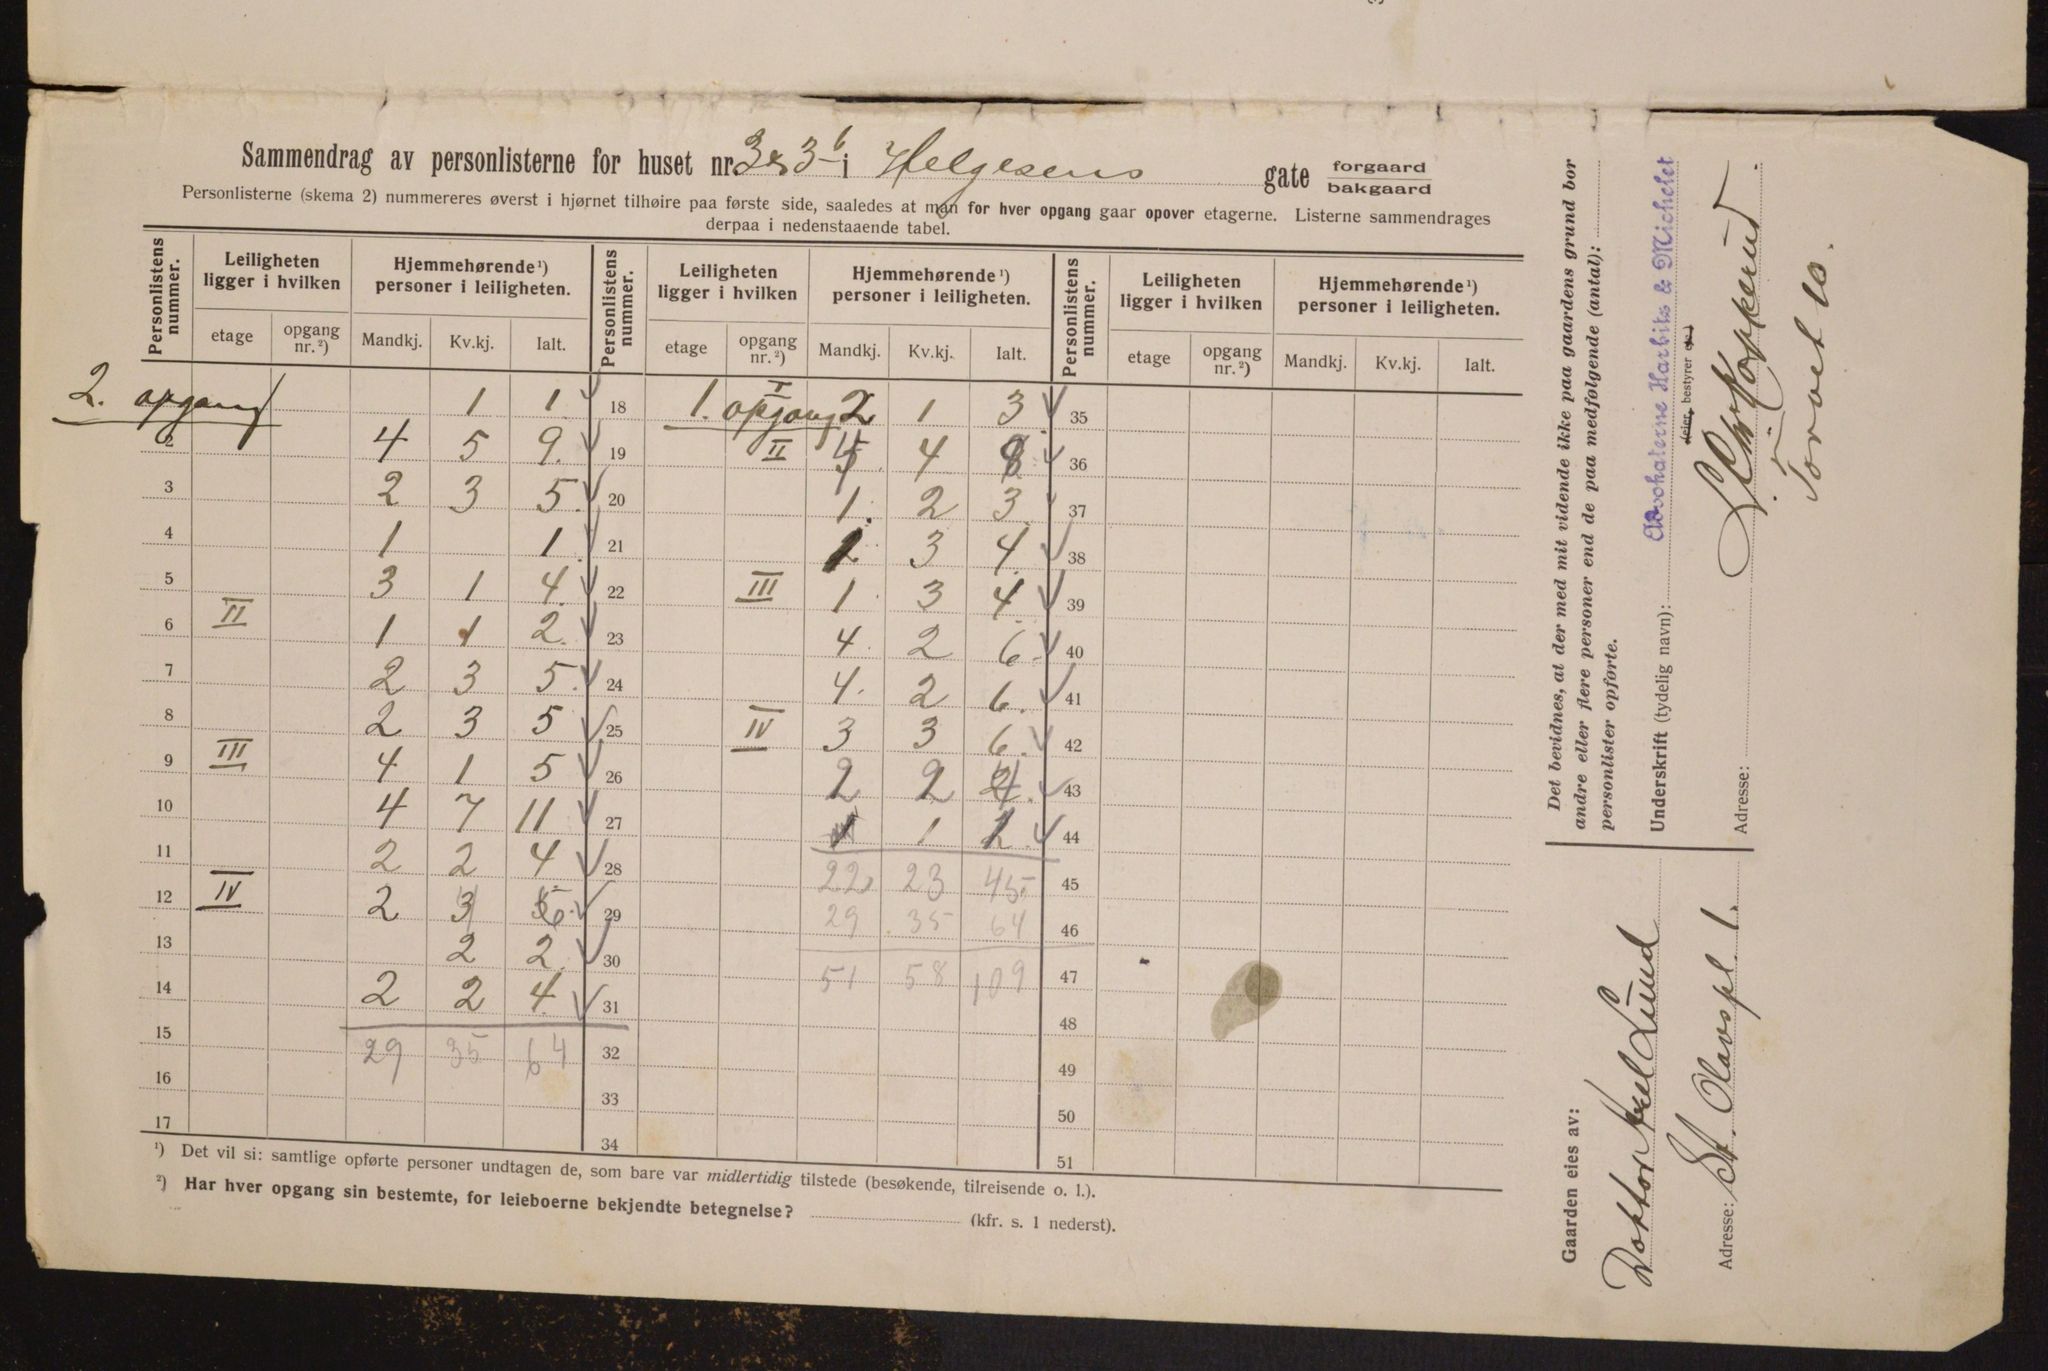 Sammendrag av personlisterne for huset nr. 3 & 3b i Helgesens gate forgaard
bakgaard
Personlisterne (skema 2) nummereres øverst i hjørnet tilhøire paa første side, saaledes at man for hver opgang gaar opover etagerne. Listerne sammendrages
derpaa i nedenstaaende tabel.
Personlistens nummer. Leiligheten ligger i hvilken Hjemmehørende ¹) personer i leiligheten. Personlistens nummer. Leiligheten ligger i hvilken Hjemmehørende ¹) personer i leiligheten. Personlistens nummer. Leiligheten ligger i hvilken Hjemmehørende ¹) personer i leiligheten.
etage opgang nr.²) Mandkj. Kv.kj. Ialt. etage opgang nr.²) Mandkj. Kv.kj. Ialt. etage opgang nr.²) Mandkj. Kv.kj. Ialt.
2. opgang 1 1 18 1. opgang I 2 1 3 35
2 4 5 9 19 II 4 8 36
3 2 3 5 20 1 2 3 37
4 1 1 21 1 3 4 38
5 3 1 4 22 III 1 3 4 39
6 II 1 1 2 23 4 2 6 40
7 2 3 5 24 4 2 6 41
8 2 3 5 25 IV 3 3 6 42
9 III 4 1 5 26 2 2 4 43
10 4 7 11 27 1 1 2 44
11 2 2 4 28 22 23 45 45
12 IV 2 29 29 35 64 46
13 2 2 30 51 58 109 47
14 2 2 4 31 48
15 29 35 64 32 49
16 33 50
17 34 51
¹) Det vil si: samtlige opførte personer undtagen de, som bare var midlertidig tilstede (besøkende, tilreisende o. l.).
²) Har hver opgang sin bestemte, for leieboerne bekjendte betegnelse? (kfr. s. 1 nederst).
Det bevidnes, at der med mit vidende ikke paa gaardens grund bor
andre eller flere personer end de paa medfølgende (antal):
personlister opførte.
Underskrift (tydelig navn): Advokaterne Harbits & Michelet
eier, bestyrer
Adresse: Torvet 10.
Gaarden eies av:
Doktor Axel Lund
Adresse: St. Olavspl. 1.